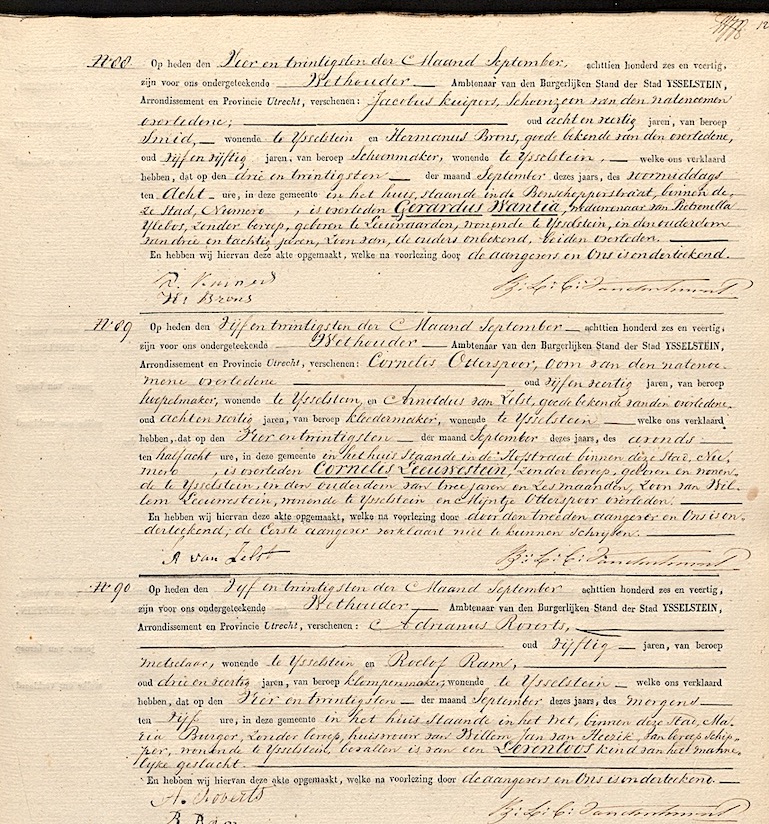 N° 88 Op heden den Vier en twintigsten der Maand September, achttien honderd zes en veertig,
zijn voor ons ondergeteekende Wethouder Ambtenaar van den Burgerlijken Stand der Stad YSSELSTEIN,
Arrondissement en Provincie Utrecht, verschenen: Jacobus Kuipers, Schoonzoon van den natenoemen
overledene; oud acht en veertig jaren, van beroep
Smid, wonende te Ysselstein en Hermanus Brons, goede bekende van den overledene,
oud vijf en vijftig jaren, van beroep Schoenmaker, wonende te Ysselstein, welke ons verklaard
hebben, dat op den drie en twintigsten der maand September dezes jaars, des voormiddags
ten Acht ure, in deze gemeente in het huis, staande in de Benschopperstraat, binnen de-
ze Stad, Numero , is overleden Gerardus Wantia, weduwenaar van Pietronella
Ylebos, zonder beroep, geboren te Leeuwaarden, wonende te Ysselstein, in den ouderdom
van drie en tachtig jaren, Zoon van, de ouders onbekend, beiden overleden.
En hebben wij hiervan deze akte opgemaakt, welke na voorlezing door de aangevers en Ons is onderteekend.
H: Brons
N° 89 Op heden den Vijf en twintigsten der Maand September achttien honderd zes en veertig,
zijn voor ons ondergeteekende Wethouder Ambtenaar van den Burgerlijken Stand der Stad YSSELSTEIN,
Arrondissement en Provincie Utrecht, verschenen: Cornelis Otterspoor, Oom van den natenoe-
mene overledene oud vijf en veertig jaren, van beroep
hoepelmaker, wonende te Ysselstein, en Arnoldus van Zelst, goede bekende van den overledene,
oud acht en veertig jaren, van beroep kleedermaker, wonende te Ysselstein welke ons verklaard
hebben, dat op den Vier en twintigsten der maand September dezes jaars, des avonds
ten half acht ure, in deze gemeente in het huis staande in de Hofstraat binnen deze Stad, Nu-
mero , is overleden Cornelis Leeuwestein, zonder beroep, geboren en wonen-
de te Ysselstein, in den ouderdom van twee jaren en zes maanden, Zoon van Wil-
lem Leeuwestein, wonende te Ysselstein en Mijntje Otterspoor overleden.
En hebben wij hiervan deze akte opgemaakt, welke na voorlezing door door den tweeden aangever en Ons is on-
derteekend, de Eerste aangever verklaart niet te kunnen Schrijven.
A van Zelst
N° 90 Op heden den Vijf en twintigsten der Maand September achttien honderd zes en veertig,
zijn voor ons ondergeteekende Wethouder Ambtenaar van den Burgerlijken Stand der Stad YSSELSTEIN,
Arrondissement en Provincie Utrecht, verschenen: Adrianus Roverts,
oud vijftig jaren, van beroep
metselaar, wonende te Ysselstein en Roelof Ram,
oud drie en veertig jaren, van beroep klompenmaker, wonende te Ysselstein welke ons verklaard
hebben, dat op den Vier en twintigsten der maand September dezes jaars, des morgens
ten vijf ure, in deze gemeente in het huis staande in het , binnen deze Stad, Ma-
ria Burger, zonder beroep, huisvrouw van Willem Jan van Heezik, van beroep Schip-
per, wonende te Ysselstein, bevallen is van een Levenloos kind van het manne-
lijke geslacht.
En hebben wij hiervan deze akte opgemaakt, welke na voorlezing door de aangevers en Ons is onderteekent.
A. Roverts
R Ram